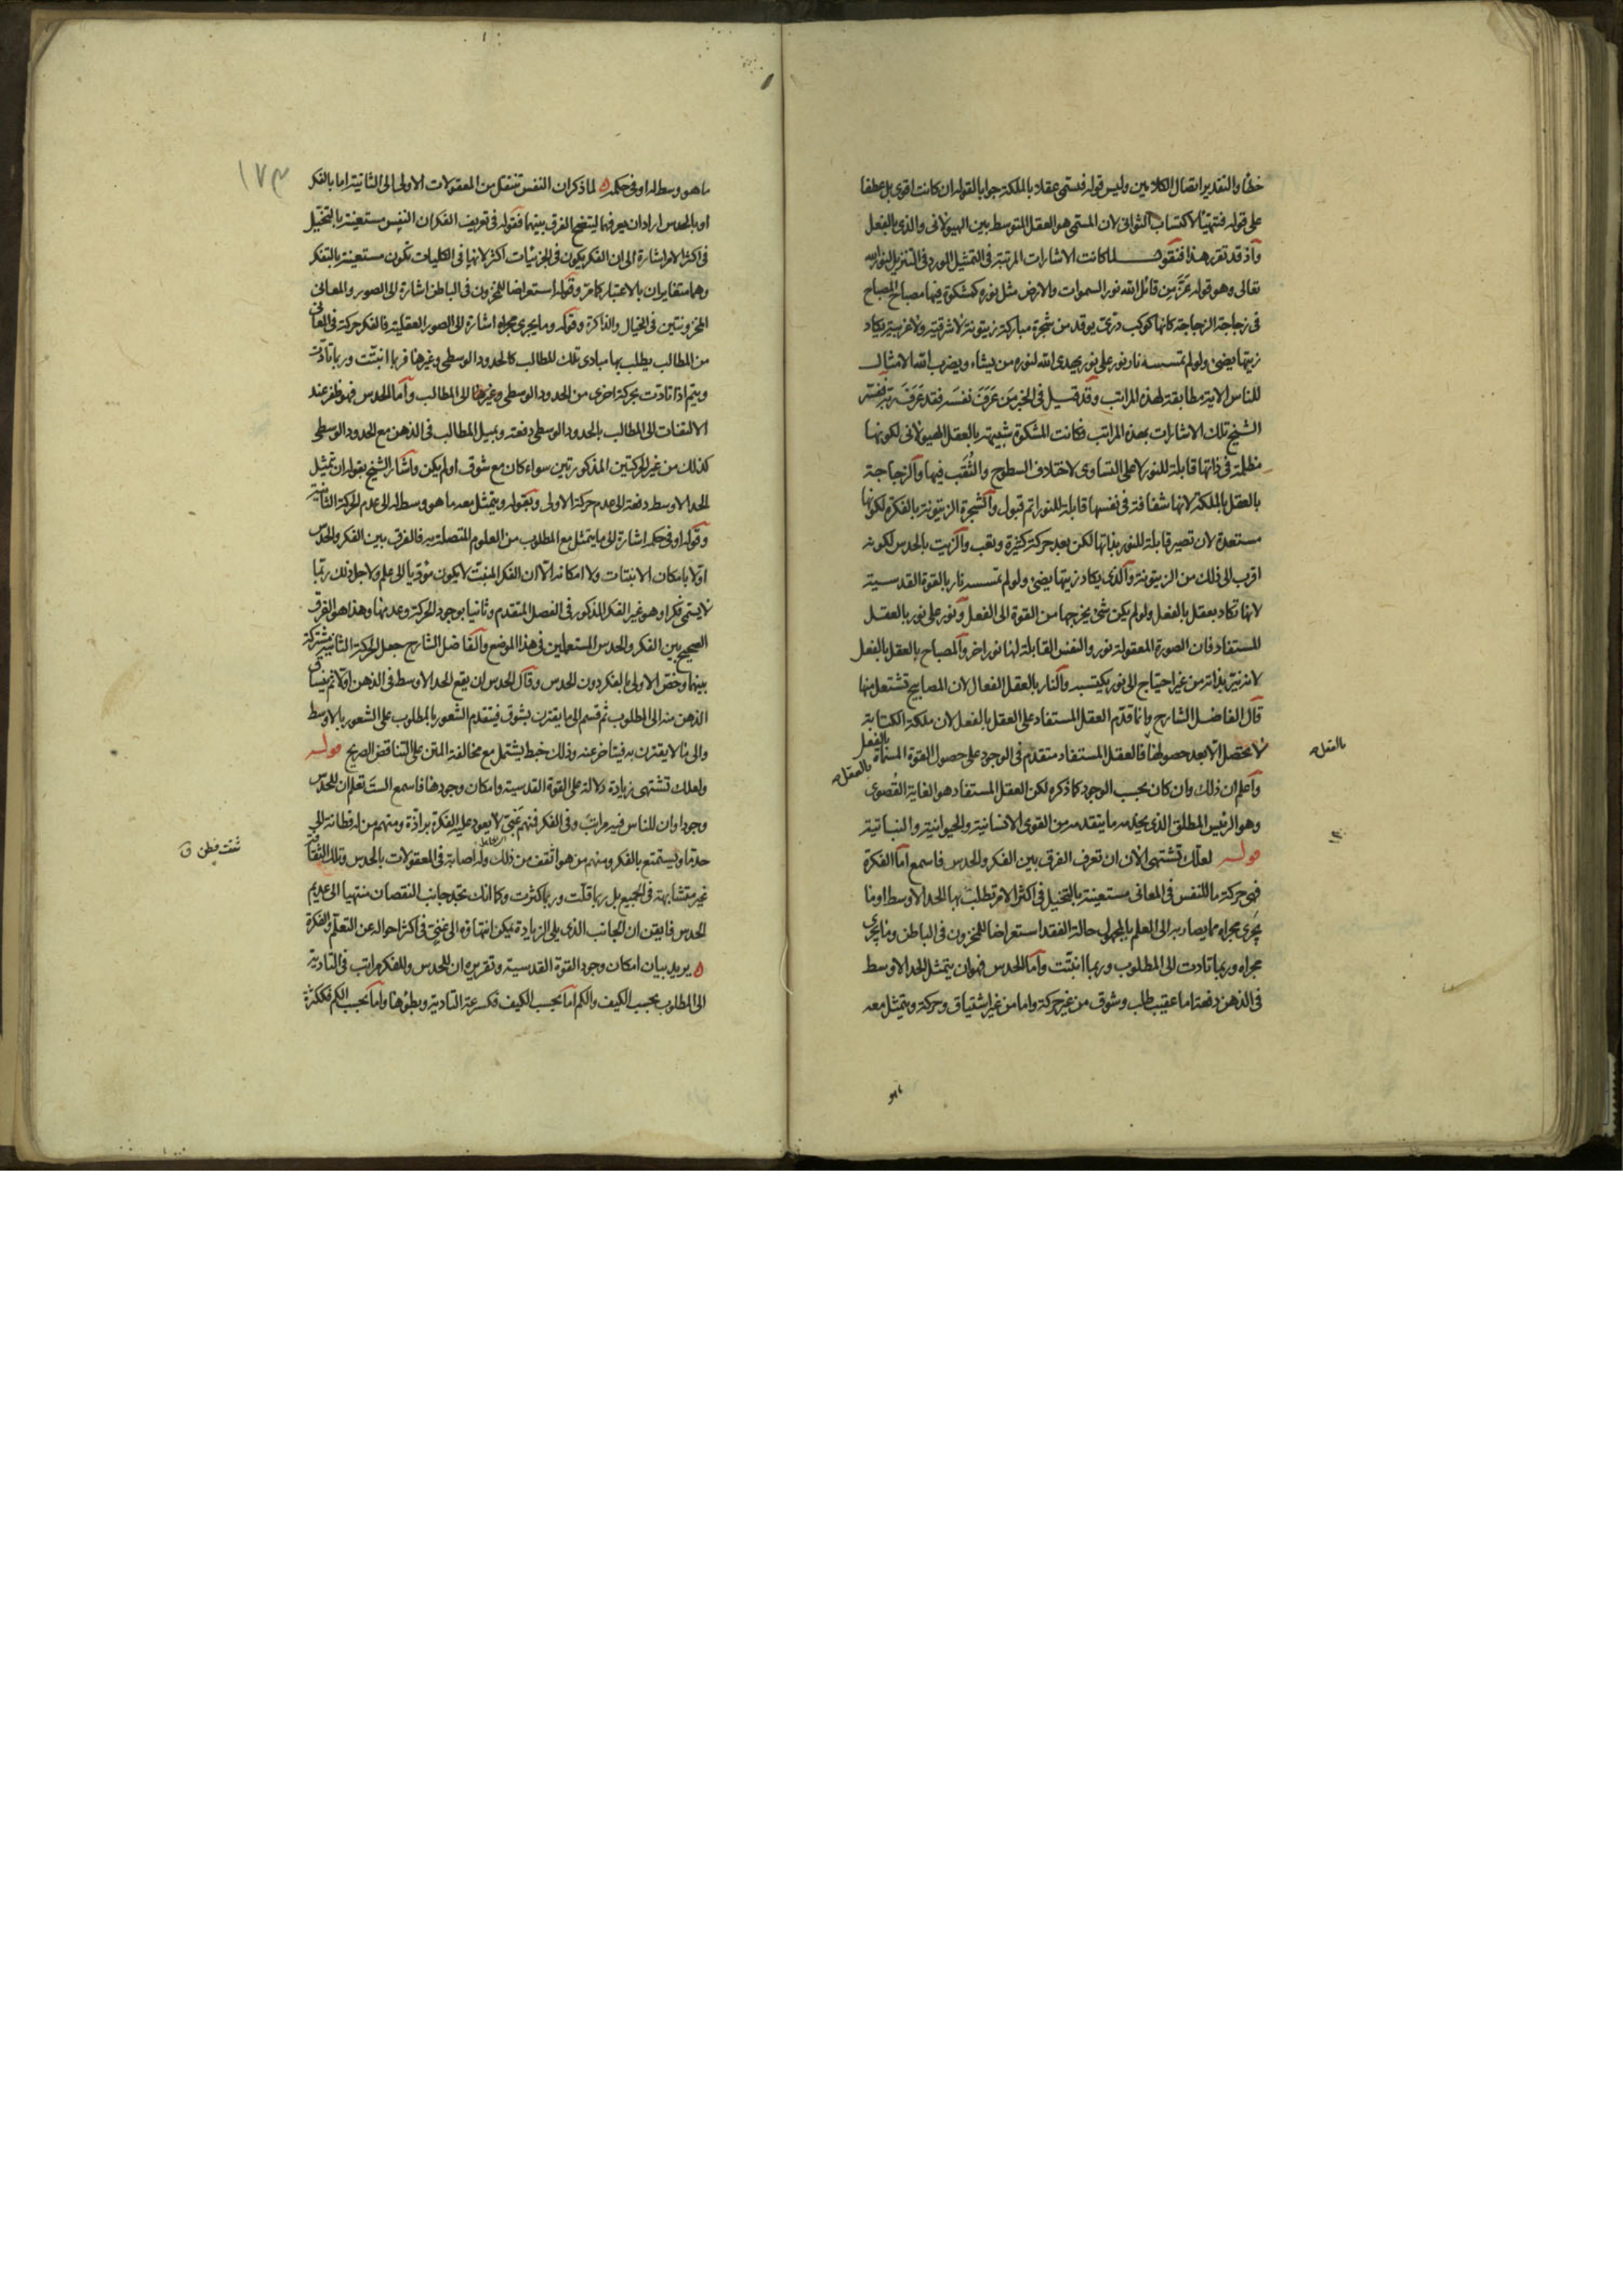 خطأ والتقدير اتصال الكلامين وليس قوله فتسمى عقلا بالملكة جوابا لقوله ان كانت اقوى بل عطفا
على قوله فتتهيأ لاكتساب الثوانى لان المسمى هو العقل المتوسط بين الهيولانى والذى بالفعل
واذ قد تقرر هذا فنقول لما كانت الاشارات المرتبة فى التمثيل المورد فى التنزيل لنور الله
تعالى وهو قوله عز من قائل الله نور السموات والارض مثل نوره كمشكوة فيها مصباح المصباح
فى زجاجة الزجاجة كانها كوكب درى يوقد من شجرة مباركة زيتونة لا شرقية ولا غربية يكاد
زيتها يضئ ولو لم تمسسه نار نور على نور يهدى الله لنوره من يشاء ويضرب الله الامثال
للناس الاية مطابقة لهذه المراتب وقد قيل فى الخبر من عرف نفسه فقد عرف ربه فسر
الشيخ تلك الاشارات بهذه المراتب فكانت المشكوة شبيهة بالعقل الهيولانى لكونها
مظلمة فى ذاتها قابلة للنور لا على التساوى لاختلاف السطوح والثقب فيها والزجاجة
بالعقل بالملكة لانها شفافة فى نفسها قابلة للنور اتم قبول والشجرة الزيتونة بالفكرة لكونها
مستعدة لان تصير قابلة للنور بذاتها لكن بعد حركة كثيرة وتعب والزيت بالحدس لكونه
اقرب الى ذلك من الزيتونة والذى يكاد زيتها يضئ ولو لم تمسسه نار بالقوة القدسية
لانها تكاد تعقل بالفعل ولو لم يكن شئ يخرجها من القوة الى الفعل ونور على نور بالعقل
المستفاد فان الصورة المعقولة نور والنفس القابلة لها نور اخر والمصباح بالعقل بالفعل
لانه نير بذاته من غير احتياج الى نور يكتسبه والنار بالعقل الفعال لان المصابيح تشتعل منها
قال الفاضل الشارح وانما قدم العقل المستفاد على العقل بالفعل لان ملكة الكتابة
لا تحصل الا بعد حصولها فالعقل المستفاد متقدم فى الوجود على حصول القوة المسماة
بالفعل
بالعقل
بالعقل
واعلم ان ذلك وان كان بحسب الوجود كما ذكره لكن العقل المستفاد هو الغاية القصوى
وهو الرئيس المطلق الذى يخدمه ما يتقدمه من القوى الانسانية والحيوانية والنباتية
قوله لعلك تشتهى الآن ان تعرف الفرق بين الفكر والحدس فاسمع اما الفكرة
فهى حركة ما للنفس فى المعانى مستعينة بالتخيل فى اكثر الامر تطلب بها الحد الاوسط او ما
يجرى مجراه مما يصار به الى العلم بالمجهول حالة الفقد استعراضا للمخزون فى الباطن وما يجرى
مجراه وربما تادت الى المطلوب وربما انبتت واما الحدس فهو ان يتمثل الحد الاوسط
فى الذهن دفعة اما عقيب طلب وشوق من غير حركة واما من غير اشتياق وحركة ويتمثل معه
ماهو
١٧٣
ما هو وسط له او فى حكمه ه لما ذكر ان النفس تنتقل من المعقولات الاولى الى الثانية اما بالفكر
او بالحدس اراد ان يعرفهما ليتضح الفرق بينهما فقوله فى تعريف الفكر ان النفس مستعينة بالتخيل
فى اكثر الامر اشارة الى ان الفكر يكون فى الجزئيات اكثر لانها فى الكليات تكون مستعينة بالتفكر
وهما متغايران بالاعتبار كما مر وقوله استعراضا للمخزون فى الباطن اشارة الى الصور والمعانى
المخزونتين فى الخيال والذاكرة وقوله وما يجرى مجراه اشارة الى الصور العقلية فالفكر حركة فى المعانى
من المطالب يطلب بها مبادى تلك المطالب كالحدود الوسطى وغيرها فربما انبتت وربما تادت
ويتم اذا تادت بحركة اخرى من الحدود الوسطى وغيرها الى المطالب واما الحدس فهو ظفر عند
الالتفات الى المطالب بالحدود الوسطى دفعة وتمثيل المطالب فى الذهن مع الحدود الوسطى
كذلك من غير الحركتين المذكورتين سواء كان مع شوق او لم يكن واشار الشيخ بقوله ان تمثيل
الحد الاوسط دفعة الى عدم حركة الاولى وبقوله ويتمثل معه ما هو وسط له الى عدم الحركة الثانية
وقوله او فى حكمه اشارة الى ما يتمثل مع المطلوب من العلوم المتصلة به فالفرق بين الفكر والحدس
اولا بامكان الانبتات ولا امكانه الا ان الفكر المنبت لا يكون مؤديا الى علم ولاجل ذلك ربما
لا يسمى فكرا وهو غير الفكر المذكور فى الفصل المتقدم وثانيا بوجود الحركة وعدمها وهذا هو الفرق
الصحيح بين الفكر والحدس المستعملين فى هذا الموضع والفاضل الشارح جعل الحركة الثانية مشتركة
بينهما وخص الاولى بالفكر دون الحدس وقال الحدس ان يقع الحد الاوسط فى الذهن اولا ثم ينساق
الذهن منه الى المطلوب ثم قسم الى ما يقترن بشوق فيتقدم الشعور بالمطلوب على الشعور بالاوسط
والى ما لا يقترن به فيتاخر عنه وذلك خبط يشتمل مع مخالفة المتن على التناقض الصريح قوله
ولعلك تشتهى زيادة دلالة على القوة القدسية وامكان وجودها فاسمع الست تعلم ان للحدس
وجودا وان للناس فيه مراتب وفى الفكر فمنهم غبى لا يعود عليه الفكرة برادة ومنهم من له فطانة الى
حد ما ويستمتع بالفكر ومنهم من هو اثقف من ذلك وله اصابة فى المعقولات بالحدس وتلك الثقافة
ثقف فطن
غير متشابهة فى الجميع بل ربما قلت وربما كثرت وكما انك تجد جانب النقصان منتهيا الى عديم
الحدس فايقن ان الجانب الذى يلى الزيادة يمكن انتهاؤه الى غنى فى اكثر احواله عن التعلم والفكرة
ه يريد بيان امكان وجود القوة القدسية وتقريره ان للحدس وللفكر مراتب فى التادية
الى المطلوب بحسب الكيف والكم اما بحسب الكيف فكسرعة التادية وبطؤها واما بحسب الكم فككثرة